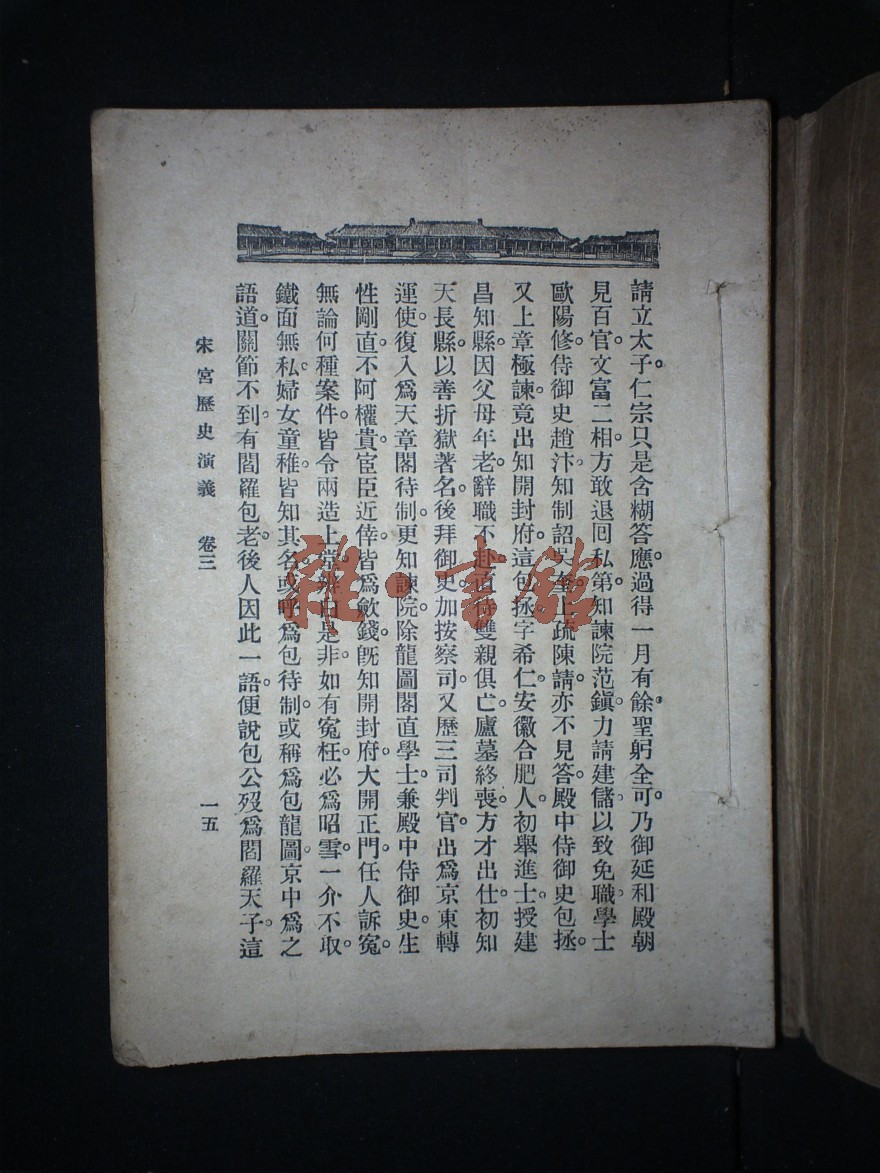 請立太子。仁宗只是含糊答應。過得一月有餘。聖躬全可。乃御延和殿朝
見百官。文富二相。方敢退回私第。知諫院范鎭。力請建儲。以致免職。學士
歐陽修。侍御史趙汴。知制詔吳奎。上疏陳請。亦不見答。殿中侍御史包拯。
又上章極諫。竟出知開封府。這包拯字希仁。安徽合肥人。初舉進士。授建
昌知縣。因父母年老。辭職不赴。直待雙親俱亡。廬墓終喪。方才出仕。初知
天長縣。以善折獄著名。後拜御史。加按察司。又歷三司判官。出爲京東轉
運使。復入爲天章閣待制。更知諫院。除龍圖閣直學士。兼殿中侍御史。生
性剛直。不阿權貴。宦臣近倖。皆爲歛錢。旣知開封府。大開正門。任人訴冤。
無論何種案件。皆令兩造上堂。辨白是非。如有冤枉。必爲昭雪。一介不取。
鐵面無私。婦女童稚。皆知其名。或呼爲包待制。或稱爲包龍圖。京中爲之
語道。關節不到。有閻羅包老。後人因此一語。便說包公歿爲閻羅天子。這
宋宮歷史演義 卷三 一五
雜·書館